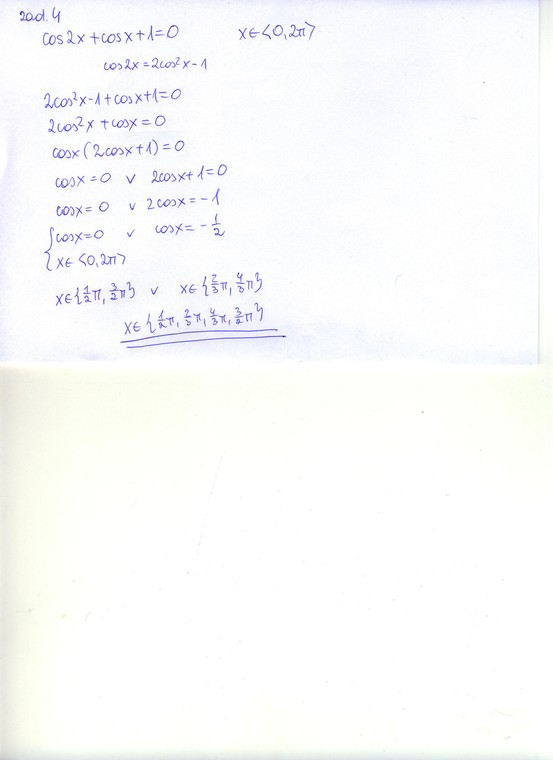 zad. 4
cos2x+cosx+1=0 x∈<0,2π>
cos2x=2cos²x-1
2cos²x-1+cosx+1=0
2cos²x+cosx=0
cosx(2cosx+1)=0
cosx=0 ∨ 2cosx+1=0
cosx=0 ∨ 2cosx=-1
{cosx=0 ∨ cosx=-1/2
{x∈<0,2π>
x∈{1/2π, 3/2π} ∨ x∈{2/3π, 4/3π}
x∈{1/2π, 2/3π, 4/3π, 3/2π}